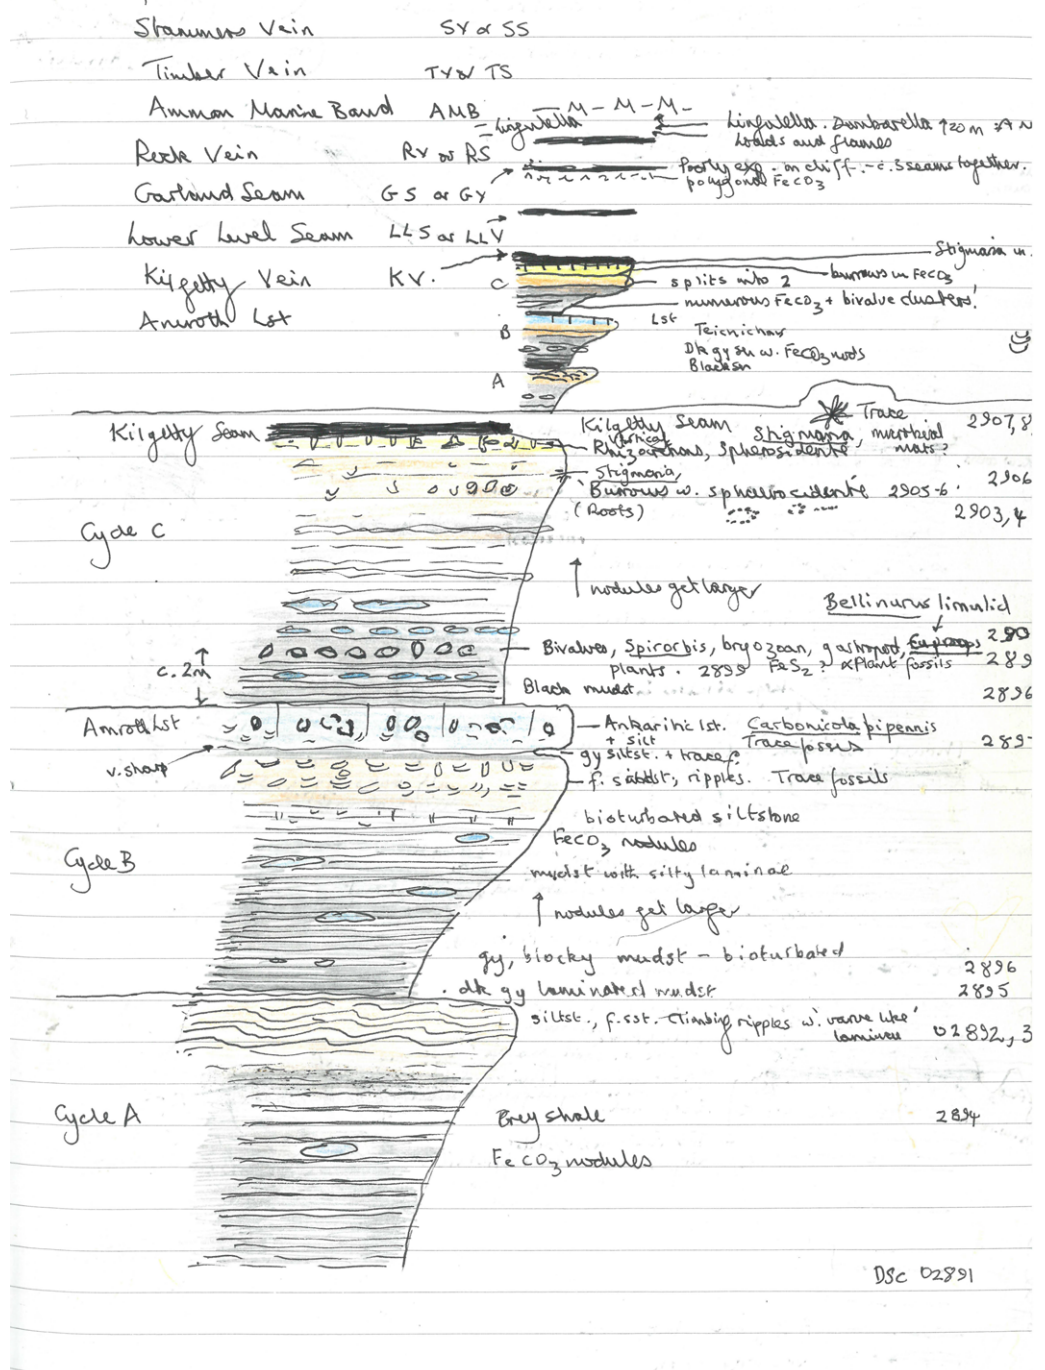 Stammers Vein SV or SS
Timber Vein TV or TS
Ammon Marine Band AMB - M - M - M -
Lingulella Lingulella . Dunbarella 120m
loads and flames
Rock Vein RV or RS
Poorly exp. on cliff. - c. 3 seams together.
polygonal FeCO3
Garland Seam GS or GV
Lower Level Seam LLS or LLV
Stigmaria in.
Kilgetty Vein KV.
burrows in FeCO3
C splits into 2
numurous FeCO3 + bivalve clusters!
Amroth Lst
Lst
B Teicnichnus
Dk gy sh w. FeCO3 nods
Blacksh
A
Kilgetty Seam Kilgetty Seam Trace 2907,8
Vertical Stigmaria, microbial
Rhizocretions, Spherosiderite mats?
Stigmaria, 2906
Burrows w. sphaerosiderite 2905-6.
(Roots) 2903,4
Cycle C
nodules get larger
Bellinurus limulid
Bivalves, Spirorbis, bryozoan, gastropod, Euproops 290
plants . 2899 FeS2? & Plant fossils 289
c. 2m
Black mudst. 2896
Amroth Lst Ankaritic lst. Carbonicola pipennis
+ silt Trace fossils 289
gy siltst. + trace f.
v. sharp
f. sandst, ripples. Trace fossils
bioturbated siltstone
FeCO3 nodules
Cycle B
mudst with silty laminae
nodules get larger
gy, blocky mudst - bioturbated 2896
dk gy laminated mudst 2895
siltst., f. sst. Climbing ripples w. 'varve like'
laminae 02892,3
Cycle A Grey shale 2894
FeCO3 nodules
DSC 02891